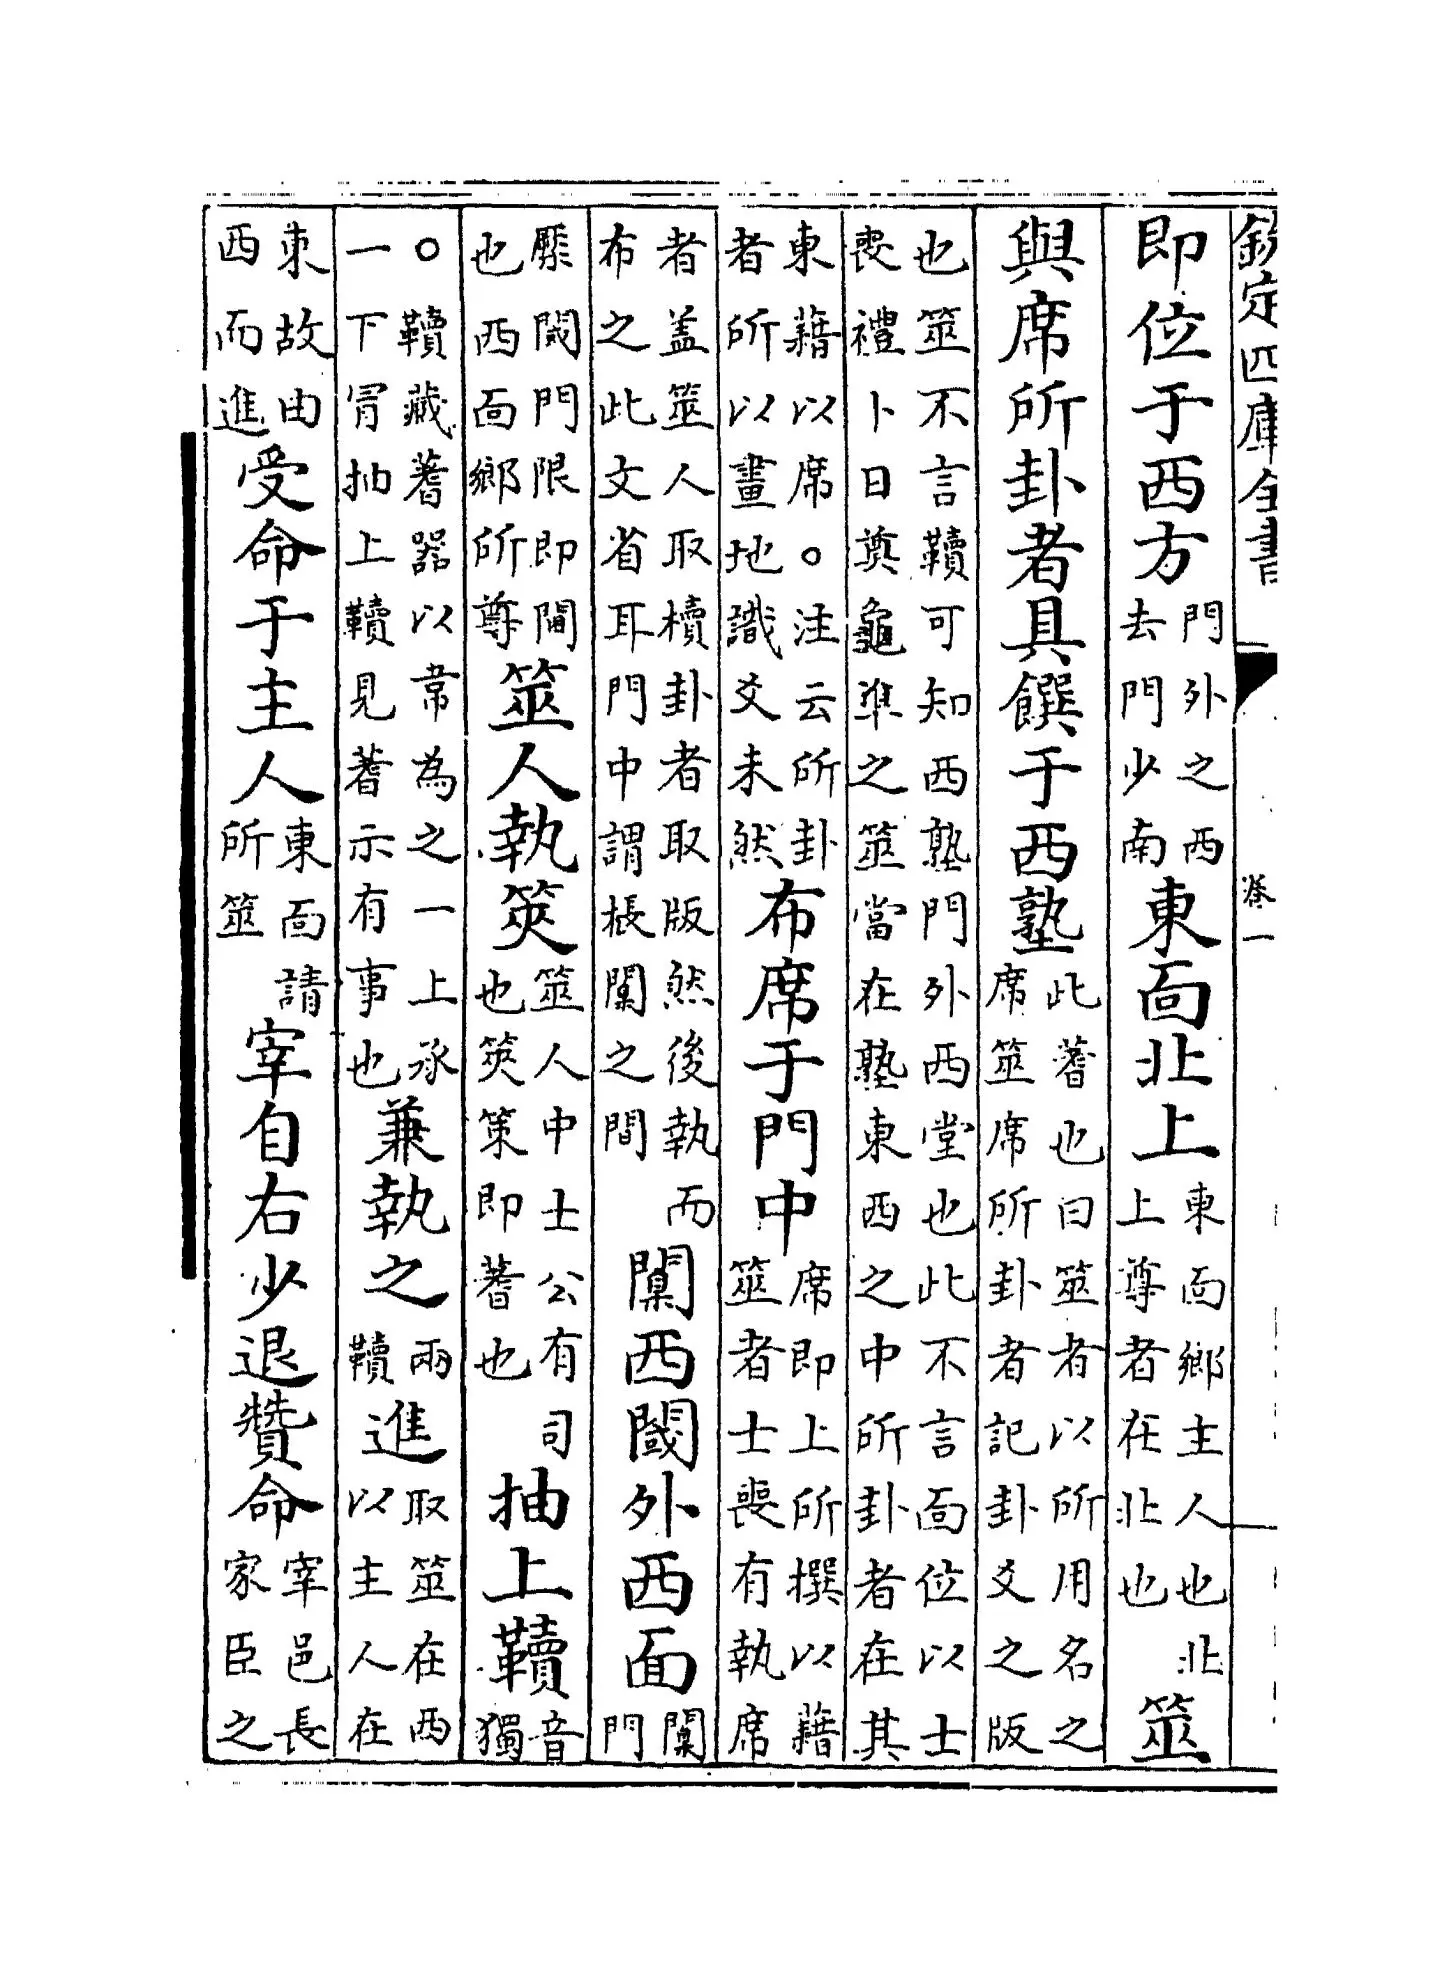 欽定四庫全書
卷一
即位于西方門外之西去門少南東面北上東面鄉主人也北上尊者在北也筮
與席所卦者具饌于西塾此蓍也曰筮者以所用名之席筮席所卦者記卦爻之版
也筮不言韇可知西塾門外西堂也此不言面位以士喪禮卜日奠龜準之筮當在塾東西之中所卦者在其
東藉以席○注云所卦者所以畫地識爻未然布席于門中席即上所撰以藉筮者士喪有執席
者盖筮人取櫝卦者取版然後執而布之此文省耳門中謂棖闑之間闑西閾外西面闑門
橜閾門限即閫也西面鄉所尊筮人執筴筮人中士公有司也筴策即蓍也抽上韇音獨
○韇藏蓍器以韋為之一上承一下冐抽上韇見蓍示有事也兼執之兩韇進取筮在西以主人在
東故由西而進受命于主人東面請所筮宰自右少退贊命宰邑長家臣之